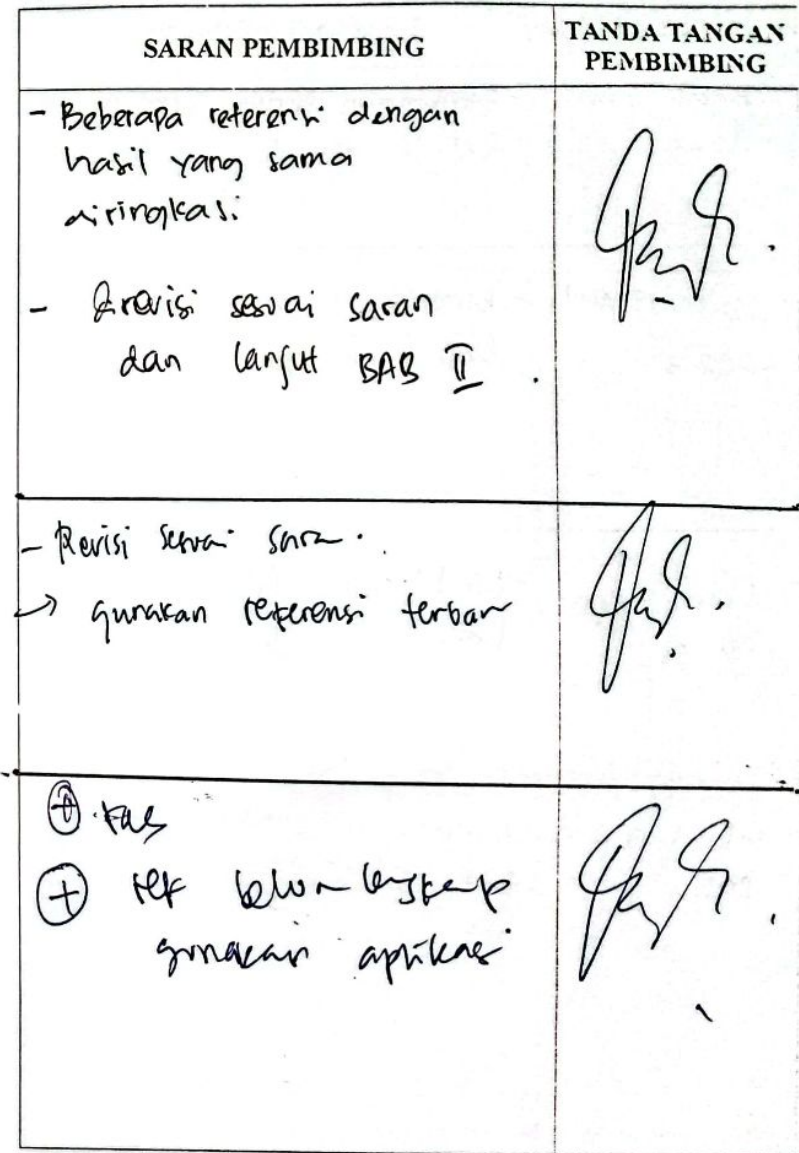 SARAN PEMBIMBING
TANDA TANGAN
PEMBIMBING
- Beberapa referensi dengan
hasil yang sama
diringkas.
- Direvisi sesuai saran
dan lanjut BAB II.
- Revisi sesuai saran.
→ gunakan referensi terbaru
+
+ ref belum lengkap
gunakan aplikasi